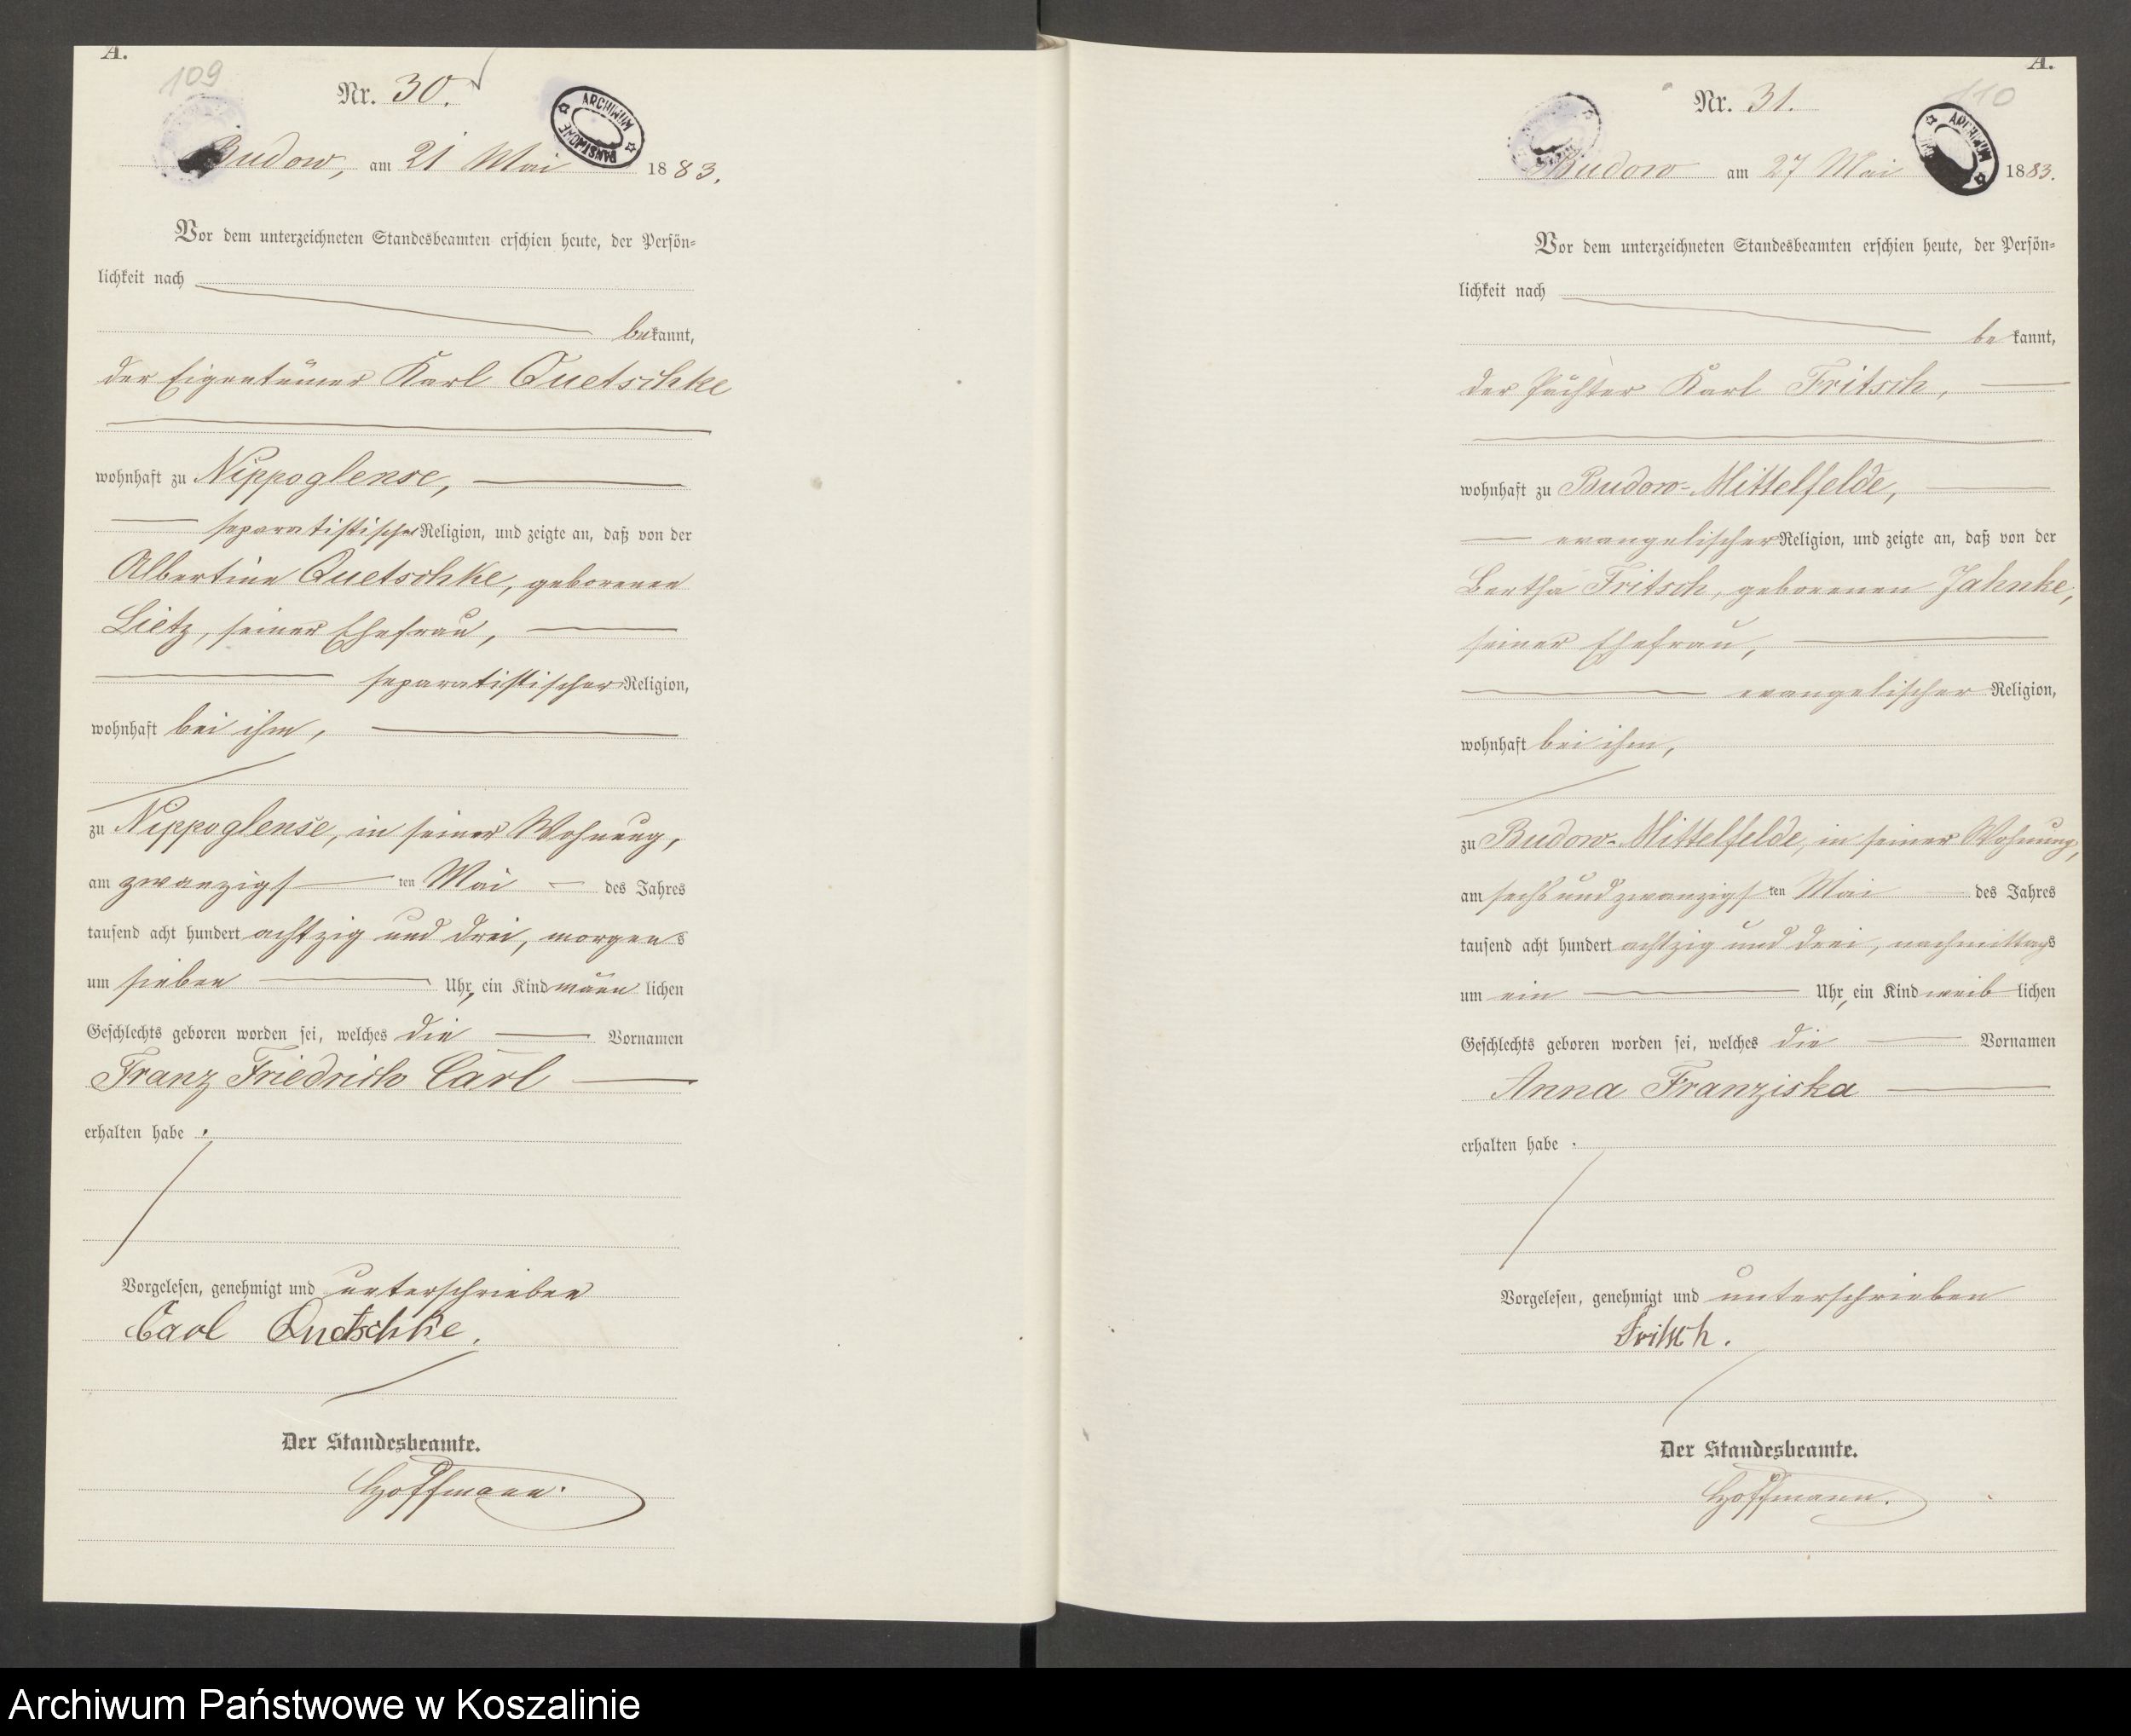 A.
109
Nr. 30.
ARCHIWUM PAŃSTWOWE
Budow, am 21 Mai 1883.
Vor dem unterzeichneten Standesbeamten erschien heute, der Persön-
lichkeit nach
bekannt,
der Eigentümer Karl Quetschke
wohnhaft zu Nippoglense,
separatistischer Religion, und zeigte an, daß von der
Albertine Quetschke, geborenen
Lietz, seiner Ehefrau,
separatistischer Religion,
wohnhaft bei ihm,
zu Nippoglense, in seiner Wohnung,
am zwanzigsten Mai des Jahres
tausend acht hundert achtzig und drei, morgens
um sieben Uhr, ein Kind männlichen
Geschlechts geboren worden sei, welches die Vornamen
Franz Friedrich Carl
erhalten habe.
Vorgelesen, genehmigt und unterschrieben
Carl Quetschke.
Der Standesbeamte.
Hoffmann.
A.
110
Nr. 31.
ARCHIWUM
Budow am 27 Mai 1883.
Vor dem unterzeichneten Standesbeamten erschien heute, der Persön-
lichkeit nach
bekannt,
der Pächter Karl Fritsch,
wohnhaft zu Budow-Mittelfelde,
evangelischer Religion, und zeigte an, daß von der
Bertha Fritsch, geborenen Jahnke,
seiner Ehefrau,
evangelischer Religion,
wohnhaft bei ihm,
zu Budow-Mittelfelde, in seiner Wohnung,
am sechsundzwanzigsten Mai des Jahres
tausend acht hundert achtzig und drei, nachmittags
um ein Uhr, ein Kind weiblichen
Geschlechts geboren worden sei, welches die Vornamen
Anna Franziska
erhalten habe.
Vorgelesen, genehmigt und unterschrieben
Fritsch.
Der Standesbeamte.
Hoffmann.
Archiwum Państwowe w Koszalinie